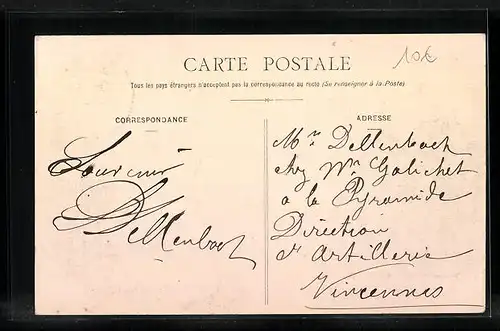 10€
CARTE POSTALE
Tous les pays étrangers n'acceptent pas la correspondance au recto (Se renseigner à la Poste)
CORRESPONDANCE
Souvenir
Dettenbach
ADRESSE
Mr Dettenbach
chez Mr Galichet
à la Pyramide
Direction
d'Artillerie
Vincennes